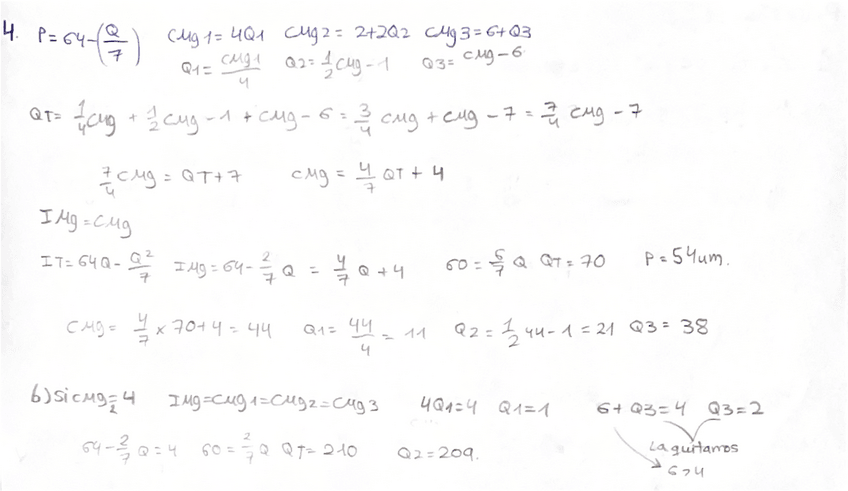 4. P=64-(Q/7) CMg1=4Q1 CMg2=2+2Q2 CMg3=6+Q3
Q1=CMg1/4 Q2=1/2CMg-1 Q3=CMg-6
QT=1/4CMg+1/2CMg-1+CMg-6=3/4CMg+CMg-7=7/4CMg-7
7/4CMg=QT+7 CMg=4/7QT+4
IMg=CMg
IT=64Q-Q²/7 IMg=64-2/7Q=4/7Q+4 60=6/7Q QT=70 P=54um.
CMg=4/7x70+4=44 Q1=44/4=11 Q2=1/2 44-1=21 Q3=38
b) Si CMg2=4 IMg=CMg1=CMg2=CMg3 4Q1=4 Q1=1 6+Q3=4 Q3=2
64-2/7Q=4 60=2/7Q QT=210 Q2=209. La quitamos
6>4